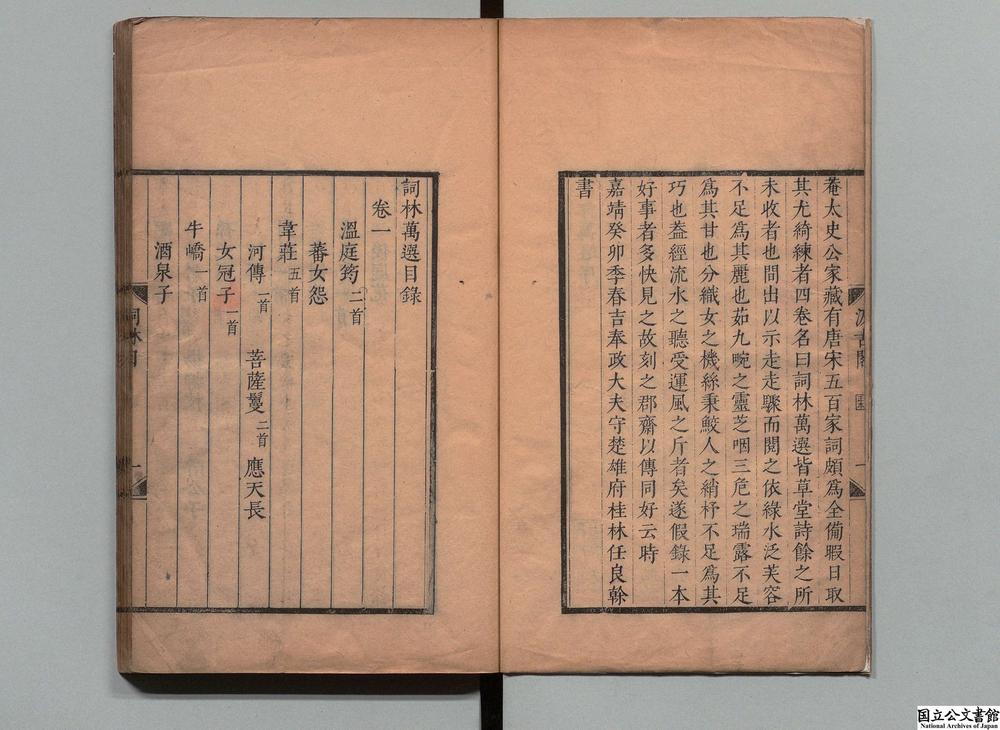 菴太史公家藏有唐宋五百家詞頗爲全備暇日取
其尤綺練者四卷名曰詞林萬選皆草堂詩餘之所
未收者也間出以示走走驟而閱之依綠水泛芙容
不足爲其麗也茹九畹之靈芝咽三危之瑞露不足
爲其甘也分織女之機絲秉鮫人之綃杼不足爲其
巧也葢經流水之聽受運風之斤者矣遂假錄一本
好事者多快見之故刻之郡齋以傳同好云時
嘉靖癸卯季春吉奉政大夫守楚雄府桂林任良榦
書
詞林萬選目錄
卷一
溫庭筠二首
蕃女怨
韋莊五首
河傳一首 菩薩鬘二首 應天長
女冠子一首
牛嶠一首
酒泉子
詞林
一
国立公文書館
National Archives of Japan